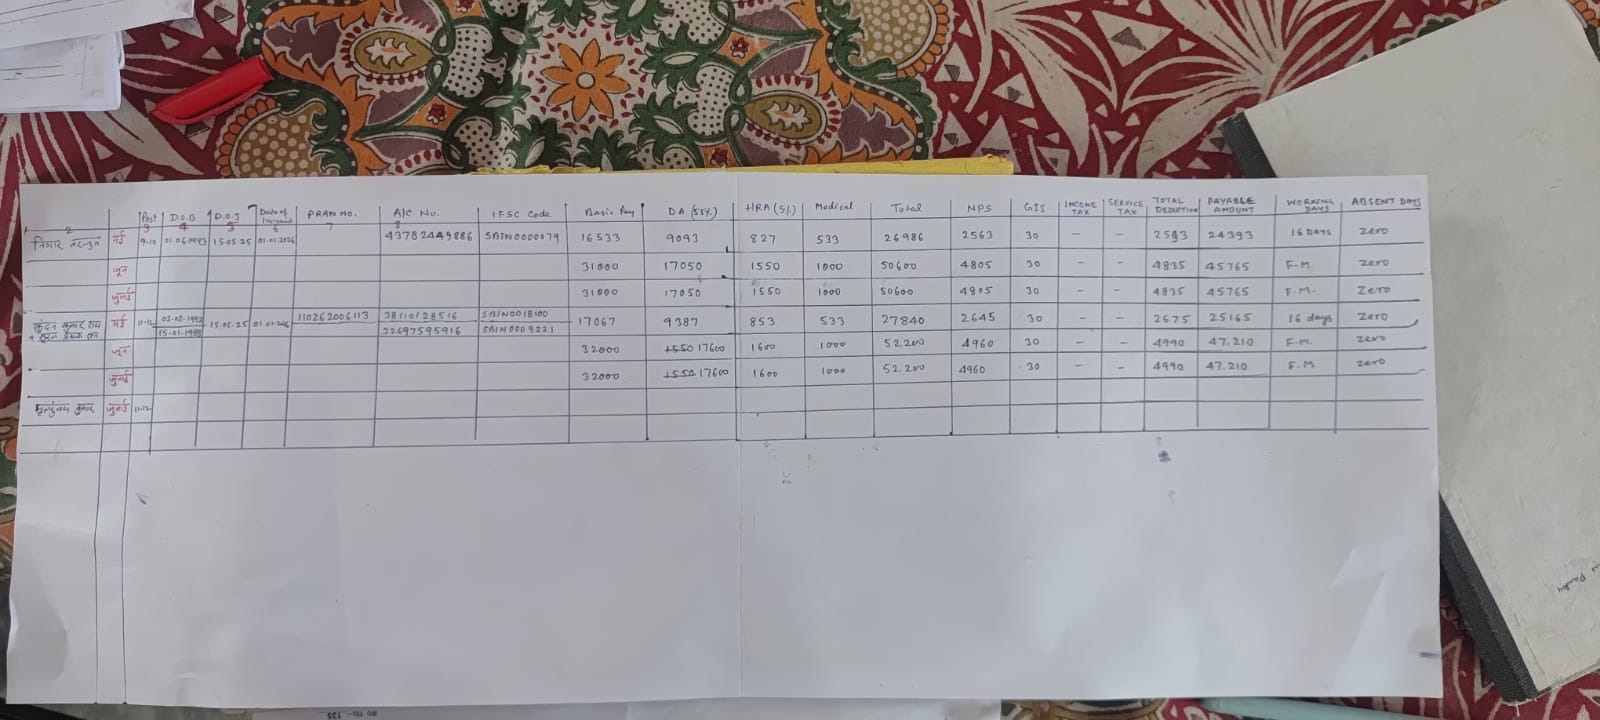 Post D.O.B D.O.J Date of Increment PRAN NO. A/C No. IFSC Code Basic Pay DA (55%) HRA (5%) Medical Total NPS GIS INCOME TAX SERVICE TAX TOTAL DEDUCTION PAYABLE AMOUNT WORKING DAYS ABSENT DAYS
2 3 4 5 6 7 8
मई 9-10 01.06.1993 15.05.25 01.01.2026 43782449886 SBIN0000079 16533 9093 827 533 26986 2563 30 - - 2593 24393 16 DAYS Zero
जून 31000 17050 1550 1000 50600 4805 30 - - 4835 45765 F.M. Zero
जुलाई 31000 17050 1550 1000 50600 4805 30 - - 4835 45765 F.M. Zero
कुंदन कुमार राय मई 11-12 02-02-1992 15.05.25 01.01.2026 110262006113 38110128516 SBIN0018100 17067 9387 853 533 27840 2645 30 - - 2675 25165 16 days Zero
+ 15-01-1988 32697595916 SBIN0009221
जून 32000 1550 17600 1600 1000 52.200 4960 30 - - 4990 47.210 F.M. Zero
जुलाई 32000 1550 17600 1600 1000 52.200 4960 30 - - 4990 47.210 F.M. Zero
मृत्युंजय कुमार जुलाई 11-12